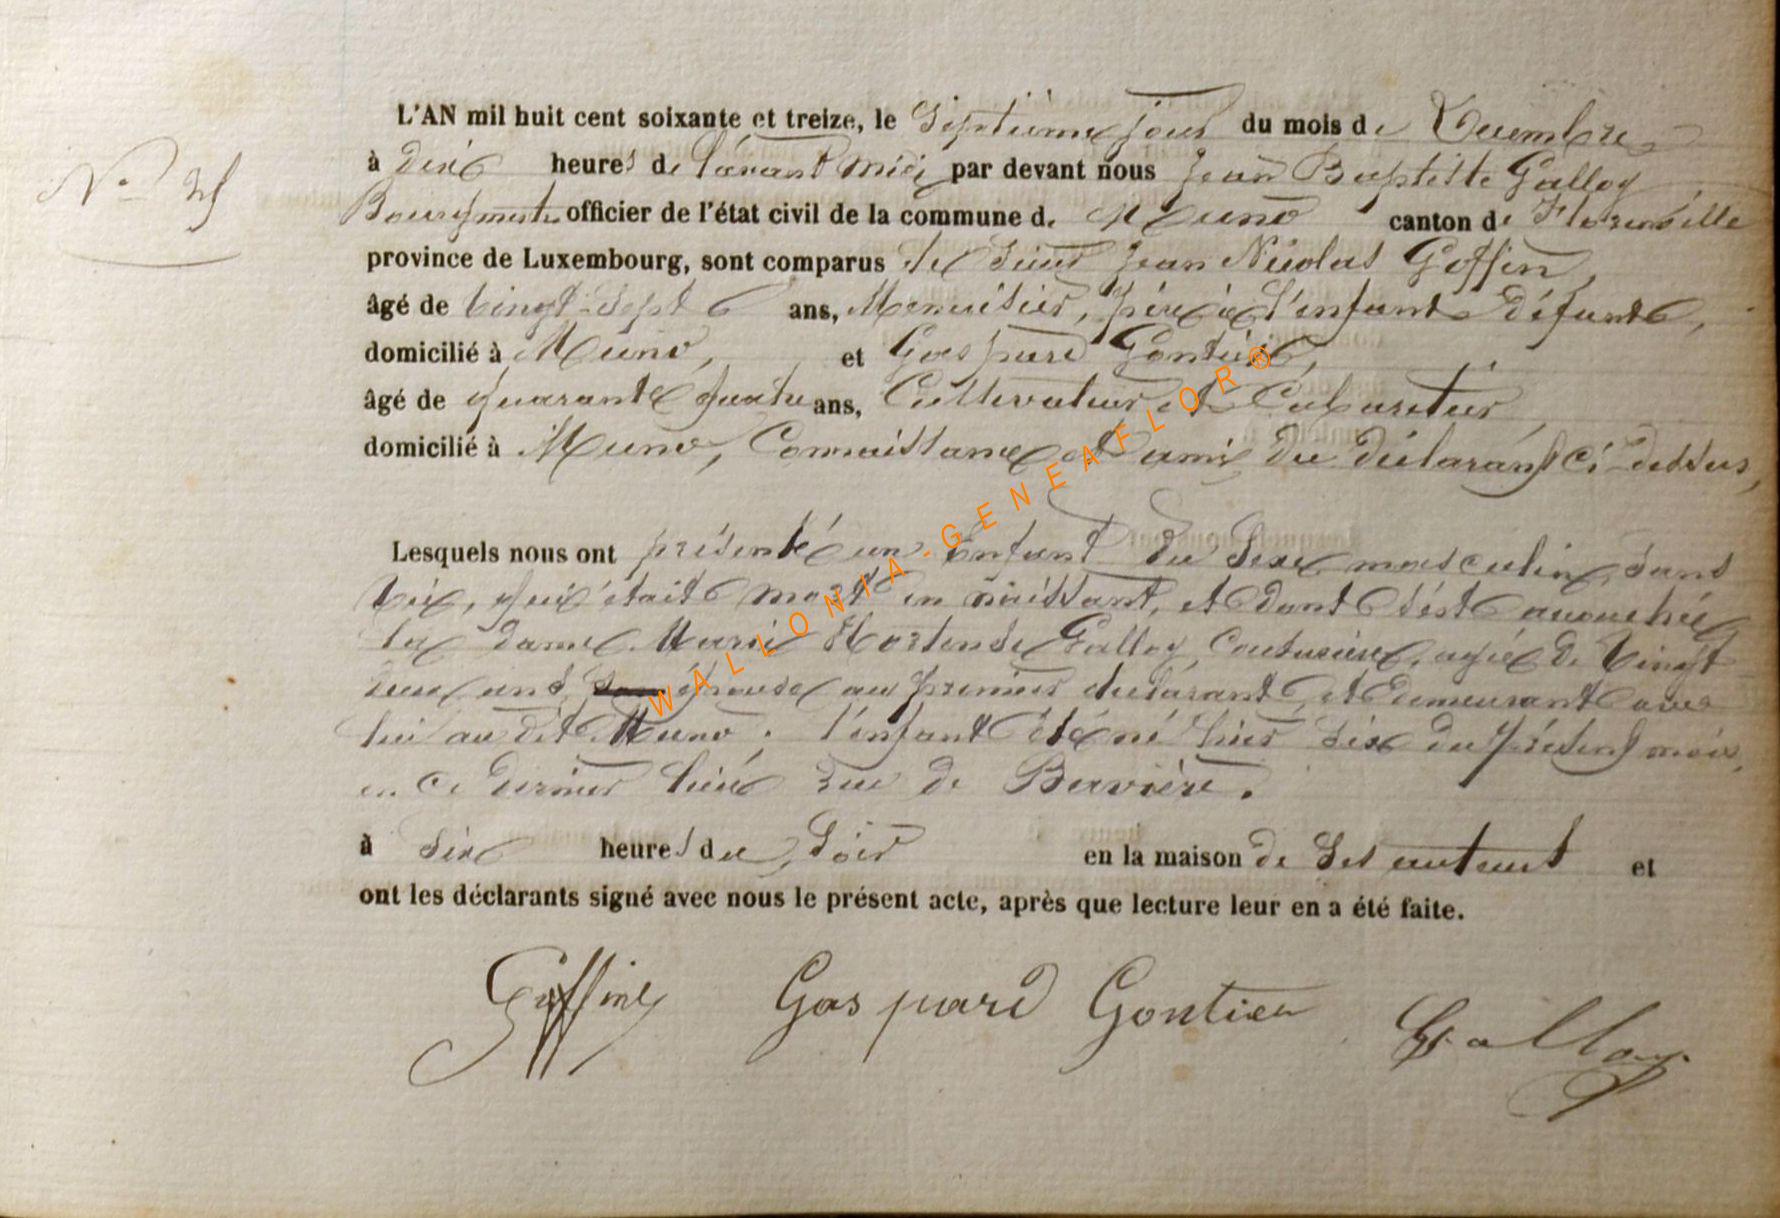 L'AN mil huit cent soixante et treize, le Septième jour du mois de Décembre
à dix heures de l'avant midi par devant nous Jean Baptiste Galloy
N° 25
Bourgmestre officier de l'état civil de la commune de Muno canton de Florenville
province de Luxembourg, sont comparus le Sieur Jean Nicolas Goffin,
âgé de vingt-sept ans, Menuisier, père à l'enfant défunt,
domicilié à Muno, et Gaspard Gontier,
âgé de quarante quatre ans, Cultivateur et Cabaretier
domicilié à Muno, Connaissance et ami du déclarant ci-dessus,
Lesquels nous ont présenté un Enfant du Sexe masculin, Sans
vie, qui était mort en naissant, et dont s'est accouchée
la dame Marie Hortense Galloy, Couturière, agée de vingt
deux ans, épouse au premier déclarant, et demeurant avec
lui au dit Muno; l'enfant été né hier six du présent mois,
en ce dernier lieu rue de Bavière.
à Six heures du Soir en la maison de Ses auteurs et
ont les déclarants signé avec nous le présent acte, après que lecture leur en a été faite.
Goffin Gaspard Gontier Galloy
WALLONIA.GENEAFLOR®